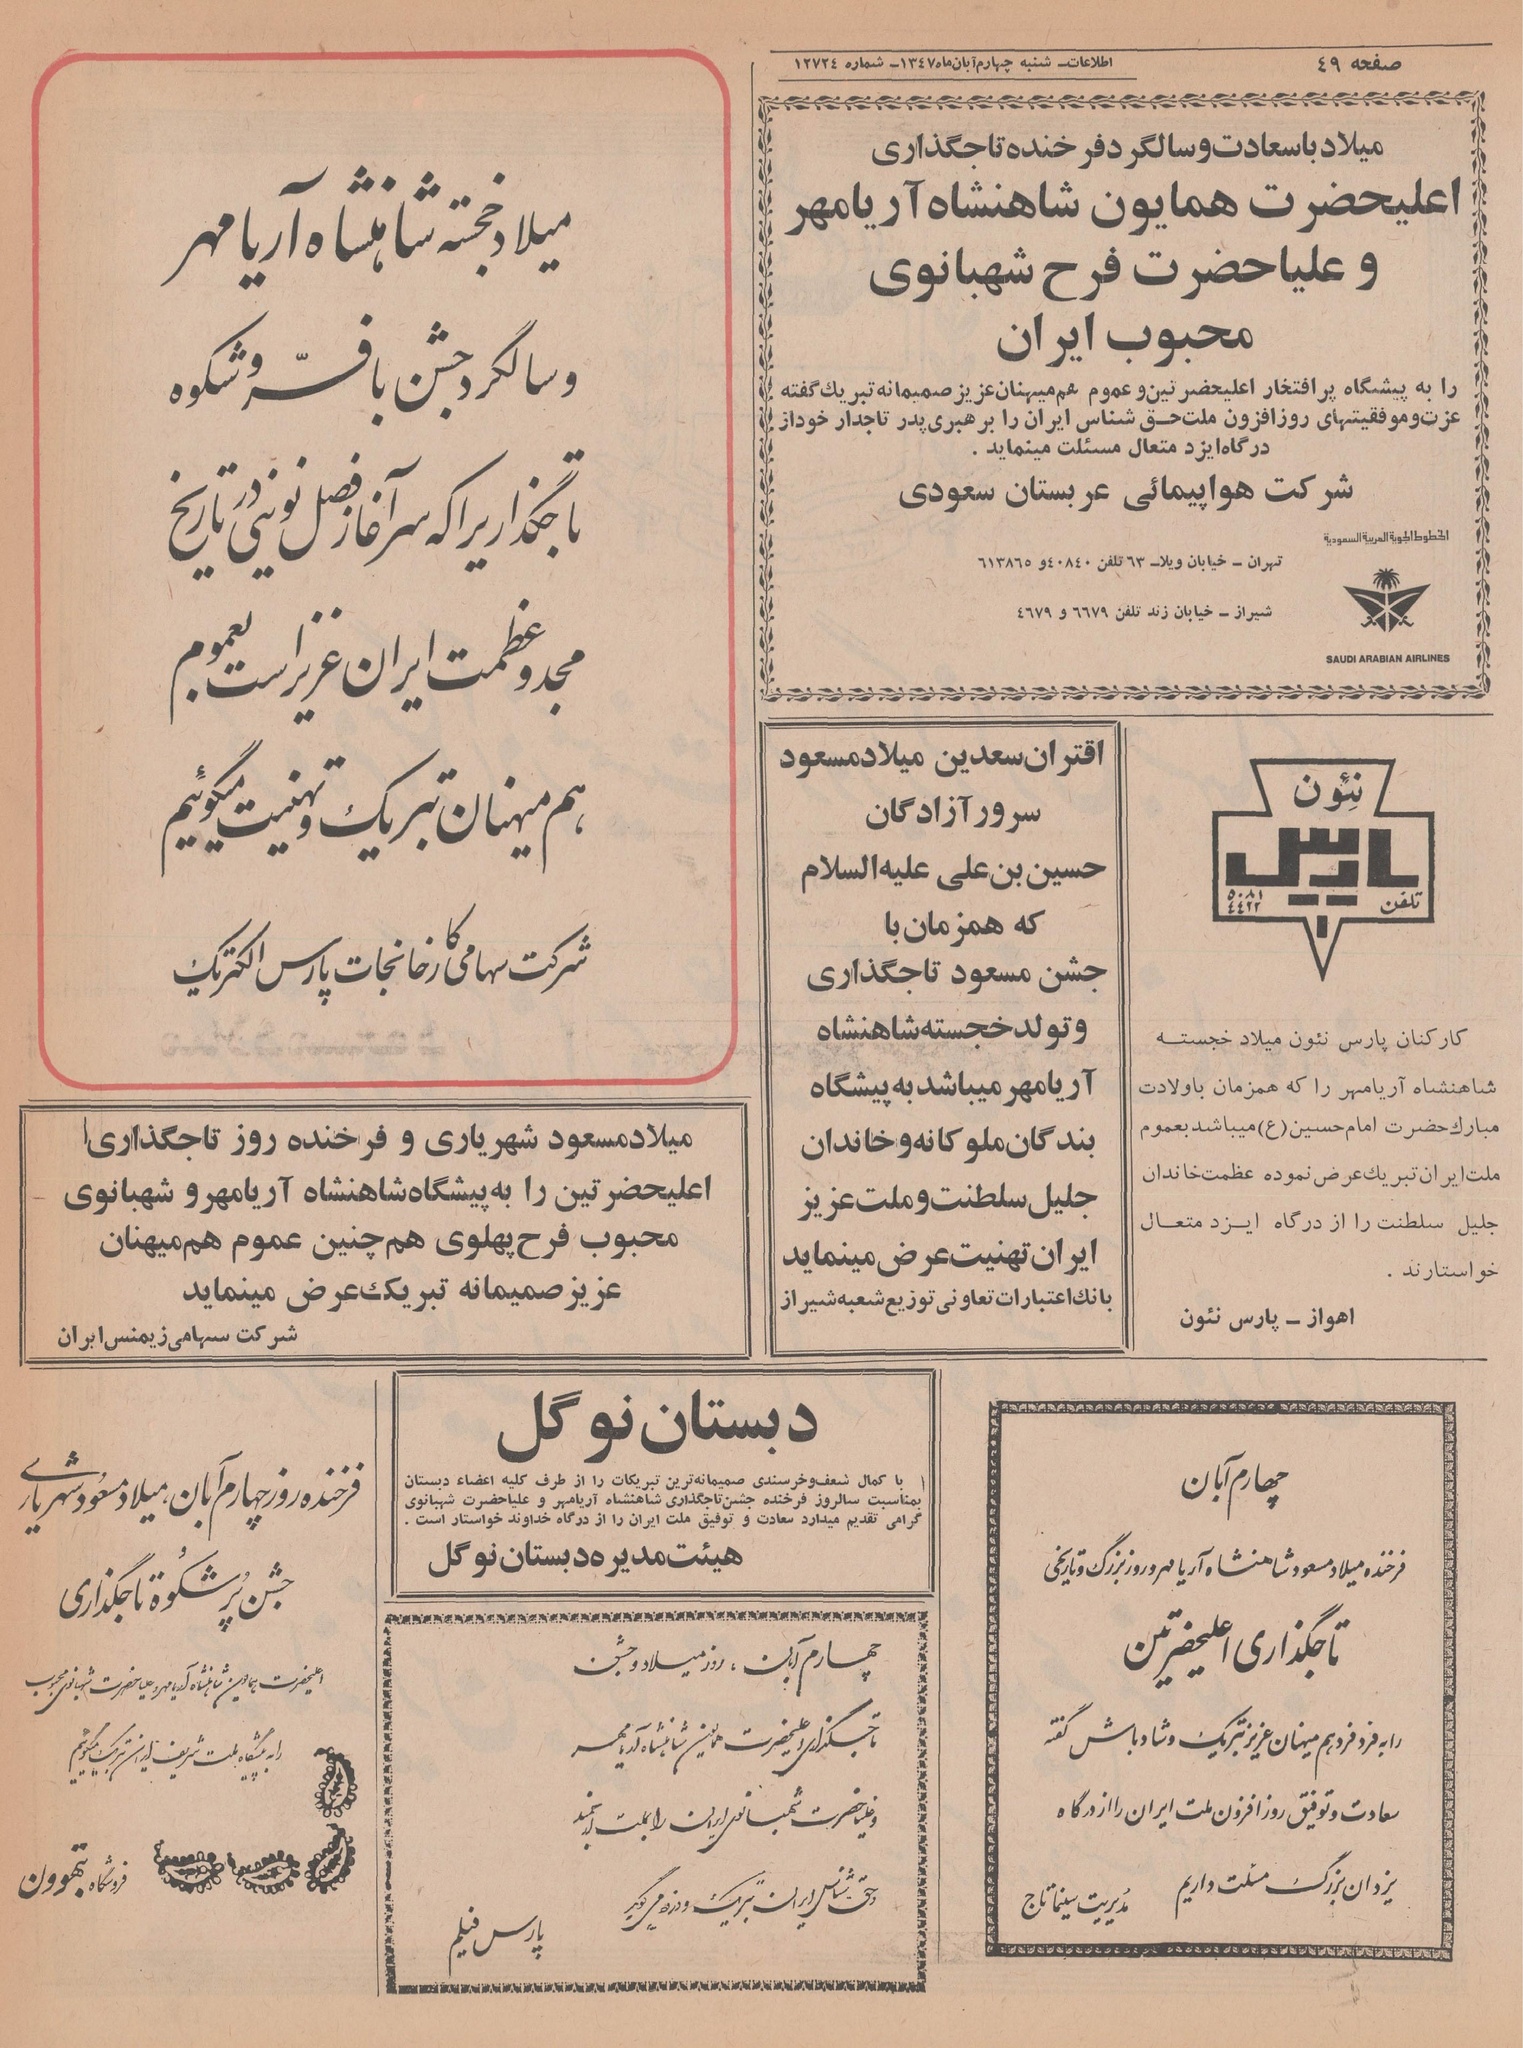 صفحه ٤٩
اطلاعات ـ شنبه چهارم آبان ماه ١٣٤٧ ـ شماره ١٢٧٢٤
میلاد باسعادت و سالگرد فرخنده تاجگذاری
اعلیحضرت همایون شاهنشاه آریامهر
و علیاحضرت فرح شهبانوی
محبوب ایران
را به پیشگاه پرافتخار اعلیحضرتین و عموم هم میهنان عزیز صمیمانه تبریك گفته
عزت و موفقیتهای روزافزون ملت حق شناس ایران را برهبری پدر تاجدار خود از
درگاه ایزد متعال مسئلت مینماید .
شرکت هواپیمائی عربستان سعودی
الخطوط الجوية العربية السعودية
تهران ـ خیابان ویلا ـ ٦٣ تلفن ٤٠٨٤٠ و ٦١٣٨٦٥
شیراز ـ خیابان زند تلفن ٦٦٧٩ و ٤٦٧٩
SAUDI ARABIAN AIRLINES
میلاد خجسته شاهنشاه آریامهر
و سالگرد جشن با فرّ و شکوه
تاجگذاریرا که سرآغاز فصل نوینی در تاریخ
مجد و عظمت ایران عزیز است بعموم
هم میهنان تبریک و تهنیت میگوئیم
شرکت سهامی کارخانجات پارس الکتریک
نئون
پارس
تلفن
٥٠٨١
٤٤٢٢
کارکنان پارس نئون میلاد خجسته
شاهنشاه آریامهر را که همزمان باولادت
مبارك حضرت امام حسین (ع) میباشد بعموم
ملت ایران تبریك عرض نموده عظمت خاندان
جلیل سلطنت را از درگاه ایزد متعال
خواستارند .
اهواز ـ پارس نئون
اقتران سعدین میلاد مسعود
سرور آزادگان
حسین بن علی علیه السلام
که همزمان با
جشن مسعود تاجگذاری
و تولد خجسته شاهنشاه
آریامهر میباشد به پیشگاه
بندگان ملوکانه و خاندان
جلیل سلطنت و ملت عزیز
ایران تهنیت عرض مینماید
بانك اعتبارات تعاونی توزیع شعبه شیراز
میلاد مسعود شهریاری و فرخنده روز تاجگذاری
اعلیحضرتین را به پیشگاه شاهنشاه آریامهر و شهبانوی
محبوب فرح پهلوی هم چنین عموم هم میهنان
عزیز صمیمانه تبریك عرض مینماید
شرکت سهامی زیمنس ایران
چهارم آبان
فرخنده میلاد مسعود شاهنشاه آریامهر و روز بزرگ و تاریخی
تاجگذاری اعلیحضرتین
را به فرد فرد هم میهنان عزیز تبریک و شادباش گفته
سعادت و توفیق روزافزون ملت ایران را از درگاه
یزدان بزرگ مسئلت داریم
مدیریت سینما تاج
دبستان نوگل
با کمال شعف و خرسندی صمیمانه ترین تبریکات را از طرف کلیه اعضاء دبستان
بمناسبت سالروز فرخنده جشن تاجگذاری شاهنشاه آریامهر و علیاحضرت شهبانوی
گرامی تقدیم میدارد سعادت و توفیق ملت ایران را از درگاه خداوند خواستار است .
هیئت مدیره دبستان نوگل
چهارم آبان ، روز میلاد و جشن
تاجگذاری اعلیحضرت همایون شاهنشاه آریامهر
و علیاحضرت شهبانوی ایران را بملت
حق شناس ایران تبریک و میگوید
پارس فیلم
فرخنده روز چهارم آبان، میلاد مسعود شهریاری
جشن پُر شکوه تاجگذاری
اعلیحضرت همایون شاهنشاه آریامهر و علیاحضرت شهبانوی محبوب
را به پیشگاه ملت شریف ایران تبریک میگوئیم
فروشگاه بتهوون